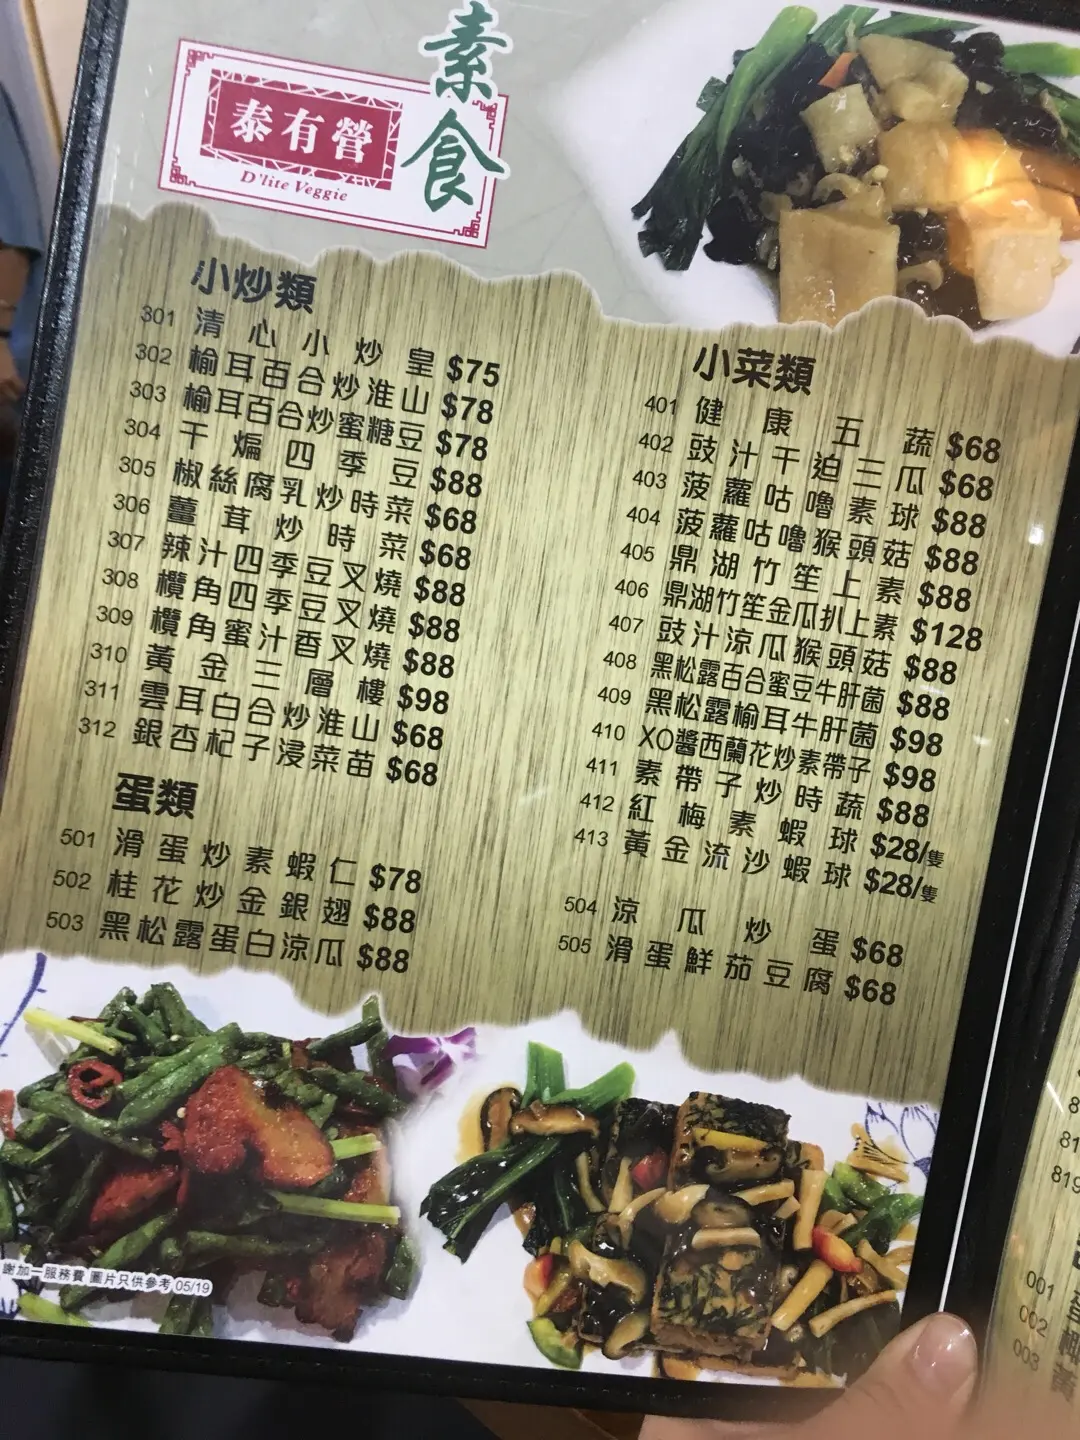 素食
泰有營
D'lite Veggie
小炒類
301 清心小炒皇 $75
302 榆耳百合炒淮山 $78
303 榆耳百合炒蜜糖豆 $78
304 干煸四季豆 $88
305 椒絲腐乳炒時菜 $68
306 薑茸炒時菜 $68
307 辣汁四季豆叉燒 $88
308 欖角四季豆叉燒 $88
309 欖角蜜汁香叉燒 $88
310 黃金三層樓 $98
311 雲耳百合炒淮山 $68
312 銀杏杞子浸菜苗 $68
小菜類
401 健康五蔬 $68
402 豉汁干迫三瓜 $68
403 菠蘿咕嚕素球 $88
404 菠蘿咕嚕猴頭菇 $88
405 鼎湖竹笙上素 $88
406 鼎湖竹笙金瓜扒上素 $128
407 豉汁涼瓜猴頭菇 $88
408 黑松露百合蜜豆牛肝菌 $88
409 黑松露榆耳牛肝菌 $98
410 XO醬西蘭花炒素帶子 $98
411 素帶子炒時蔬 $88
412 紅梅素蝦球 $28/隻
413 黃金流沙蝦球 $28/隻
蛋類
501 滑蛋炒素蝦仁 $78
502 桂花炒金銀翅 $88
503 黑松露蛋白涼瓜 $88
504 涼瓜炒蛋 $68
505 滑蛋鮮茄豆腐 $68
謝加一服務費 圖片只供參考 05/19
8
81
819
001
002
003